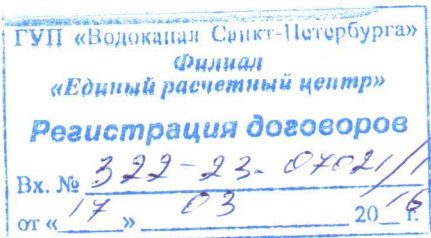 ГУП «Водоканал Санкт-Петербурга»
Филиал
«Единый расчетный центр»
Регистрация договоров
Вх. № 322-23-07021/1
от « 17 » 03 2016 г.